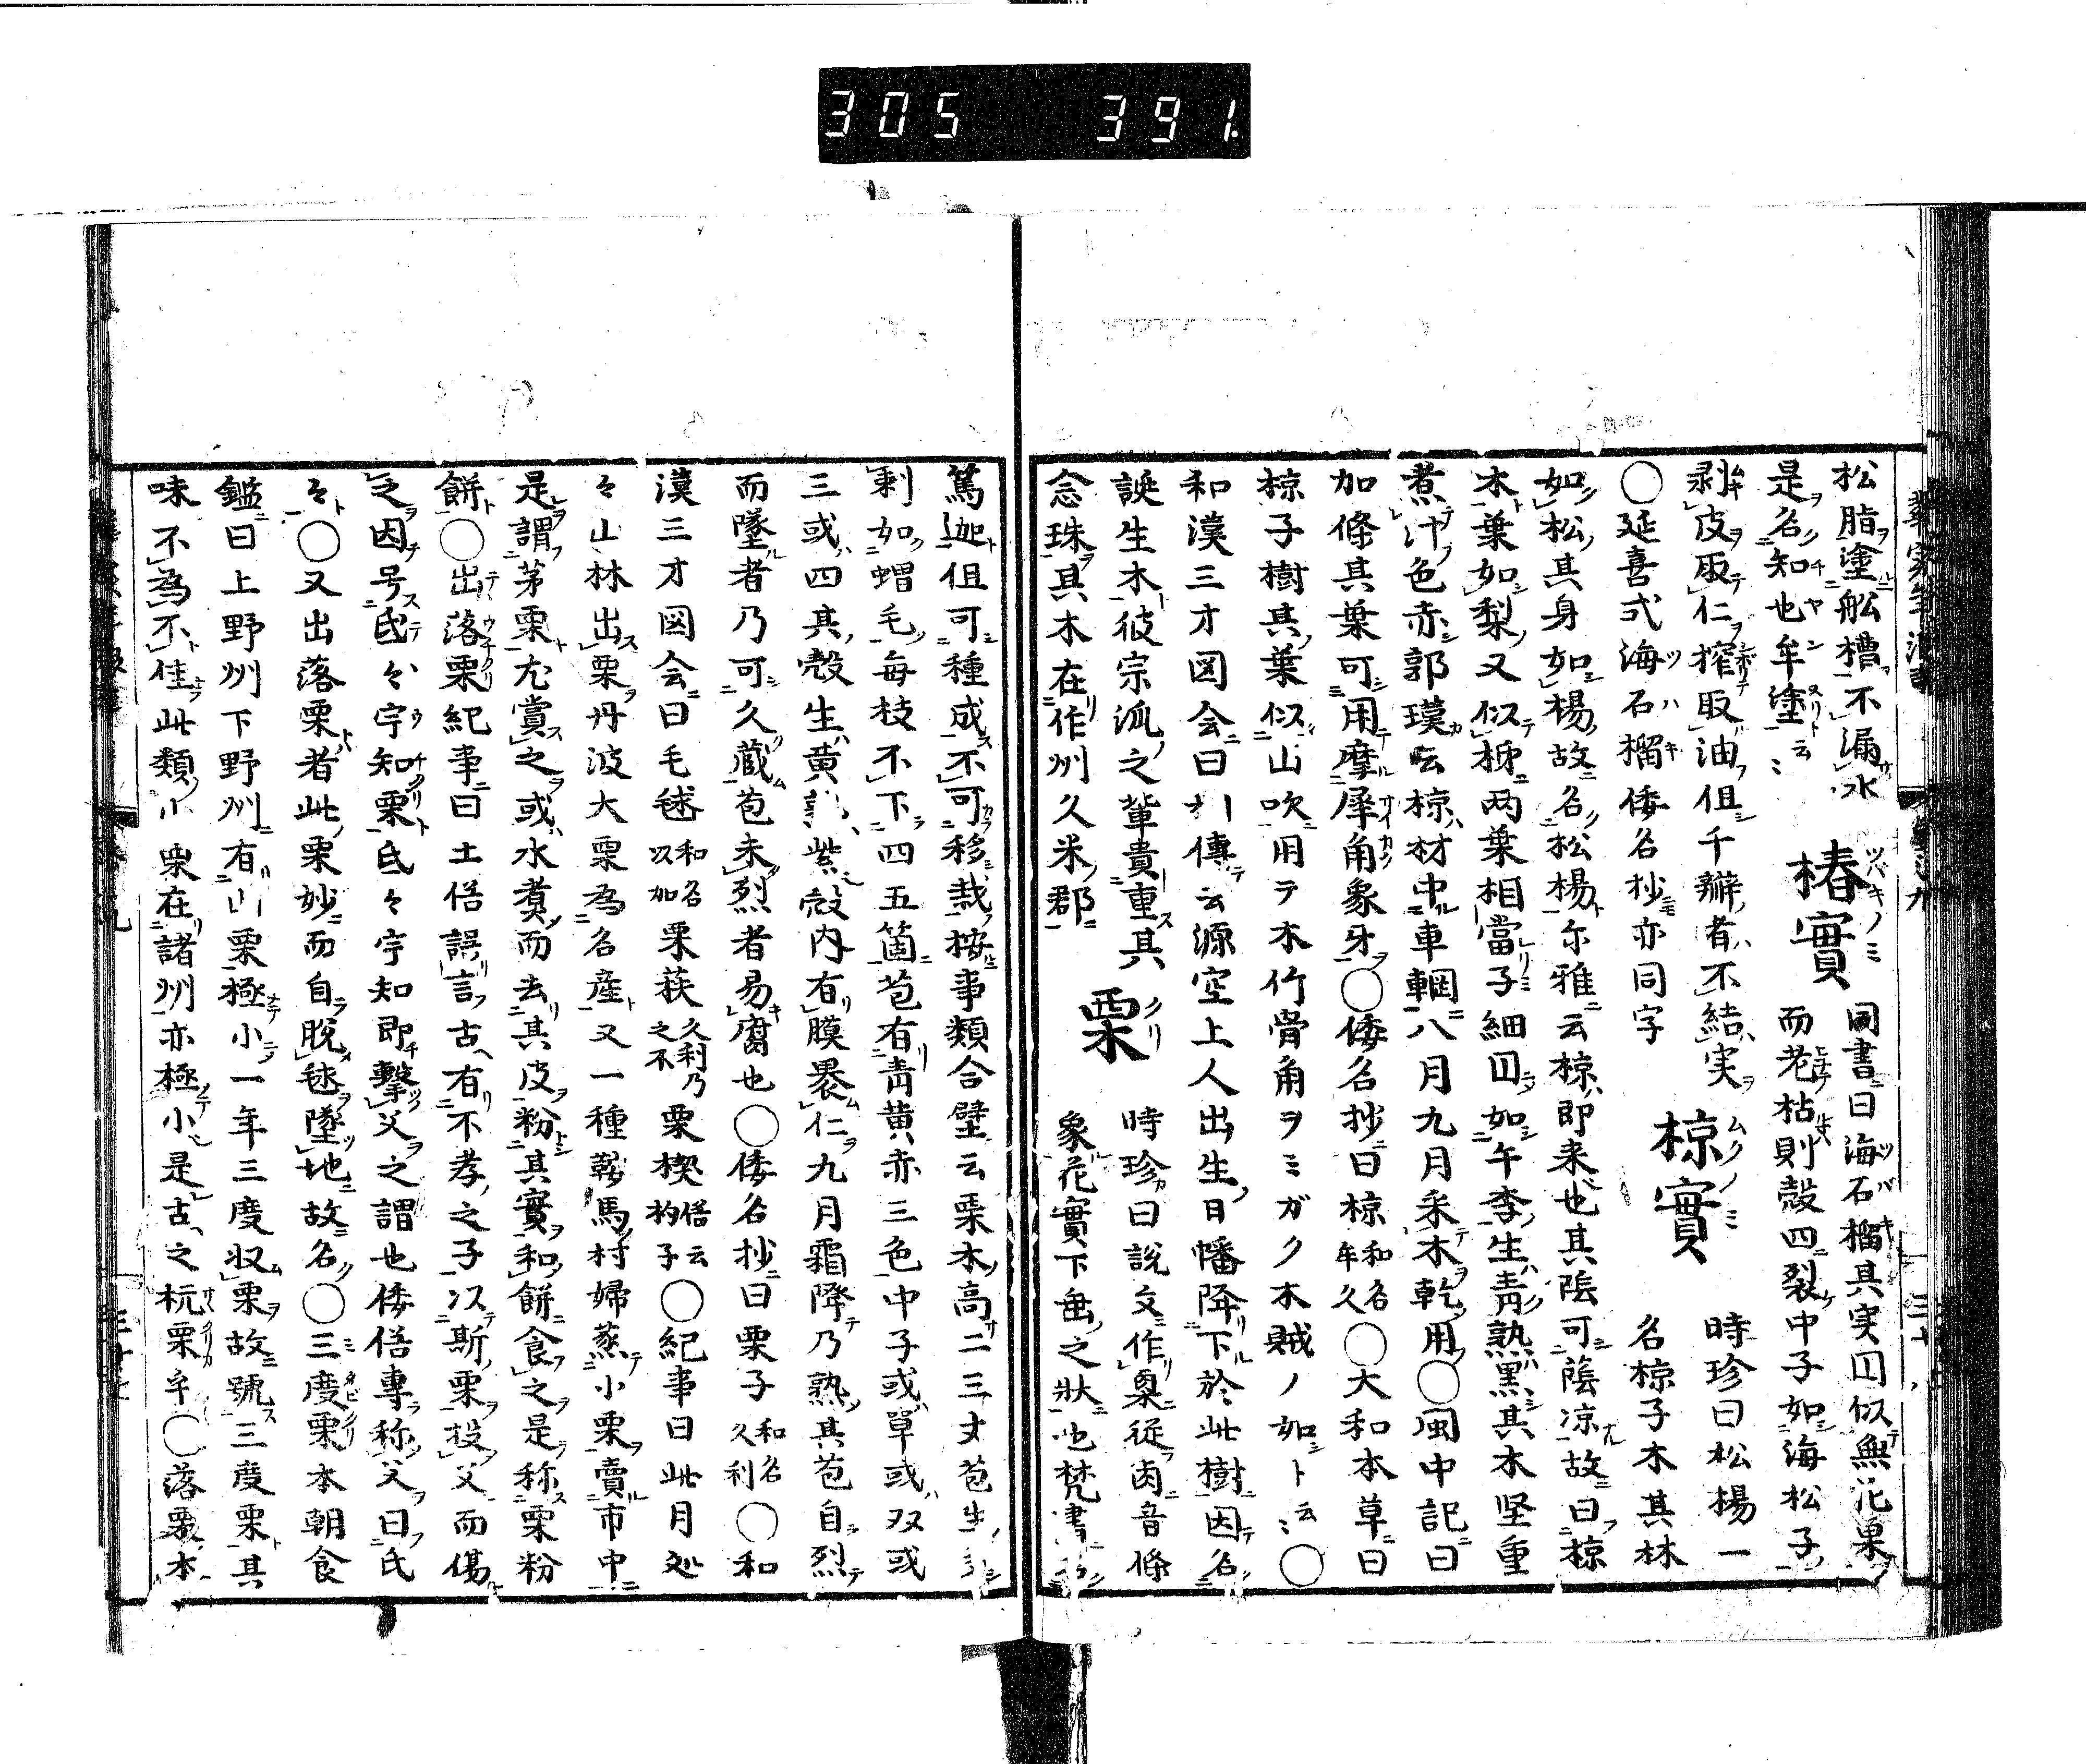 305 391.
松脂塗舩槽不漏水 椿實 同書曰海石榴其実円似無花果
是名知也牟塗云〻 而老枯則殻四裂中子如海松子
剥皮取仁搾取油但千瓣者不結実 椋實 時珍曰松楊一
〇延喜式海石榴倭名抄亦同字 名椋子木其林
如松其身如楊故名松楊尓雅云椋即来也其陰可蔭凉故曰椋
木葉如梨又似柹両葉相當子細円如午李生青熟黒其木坚重
煮汁色赤郭璞云椋材中車輞八月九月采木乾用〇閩中記曰
加條其葉可用摩犀角象牙〇倭名抄曰椋和名牟久〇大和本草曰
椋子樹其葉似山吹用テ木竹骨角ヲミガク木賊ノ如ト云〻〇
和漢三才図会曰相傳云源空上人出生日幡降下於此樹因名
誕生木彼宗派之輩貴重其 栗 時珍曰説文作㮚從卤音條
念珠其木在作州久米郡 象花實下垂之状也梵書名
篤迦但可種成不可移栽按事類合璧云栗木高二三丈苞生
剌如蝟毛每枝不下四五箇苞有青黄赤三色中子或單或双或
三或四其殻生黄熟紫殻内有膜褁仁九月霜降乃熟其苞自烈
而墜者乃可久蔵苞未烈者易腐也〇倭名抄曰栗子和名久利〇和
漢三才図会曰毛毬和名以加栗荴久利乃之不栗楔俗云杓子〇紀事曰此月処
々山林出栗丹波大栗為名産又一種鞍馬村婦蒸小栗賣市中
是謂茅栗尤賞之或水煮而去其皮粉其實和餅食之是称栗粉
餅〇出落栗紀事曰土俗誤言古有不孝之子以斯栗投父而傷
之因号氐々宇知栗氐々宇知即撃父之謂也倭俗専称父曰氐
々〇又出落栗者此栗妙而自脱毬墜地故名〇三度栗本朝食
鑑曰上野州下野州有山栗極小一年三度収栗故號三度栗其
味不為不佳此類小栗在諸州亦極小是古之杬栗乎〇落栗本